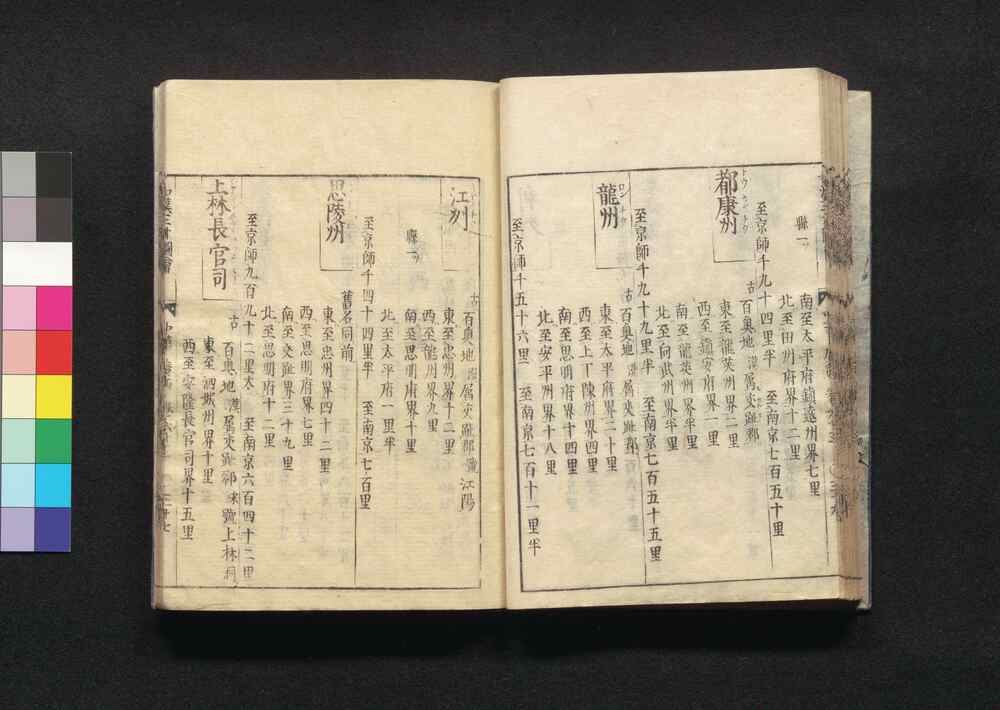 南至太平府鎮遠州界七里
北至田州府界十二里
縣一
至京師千九十四里半 至南京七百五十里
都康州
トウカントウ
古百奥地 漢屬交趾郡
東至龍英州界二里
西至鎮安府一里
南至龍英州界半里
北至向武州界半里
至京師千九十九里半 至南京七百五十五里
龍州
古百奥地 漢屬交趾郡
東至太平府界二十里
西至上下陳州界四里
南至思明府界十四里
北至安平州界十八里
至京師千五十六里 至南京七百十一里半
江州
古百奥地 漢屬交趾郡 號江陽
東至忠州界十二里
西至龍州界九里
南至思明府界十里
北至太平府一里半
縣一
至京師千四十四里半 至南京七百里
思陵州
舊名同前
東至忠州界四十二里
西至思明府界七里
南至交趾界三十九里
北至思明府十二里
至京師九百九十二里大 至南京六百四十二里
上林長官司
古百奥地 漢屬交趾郡 宋號上林洞
東至泗城州界十里
西至安隆長官司界十五里